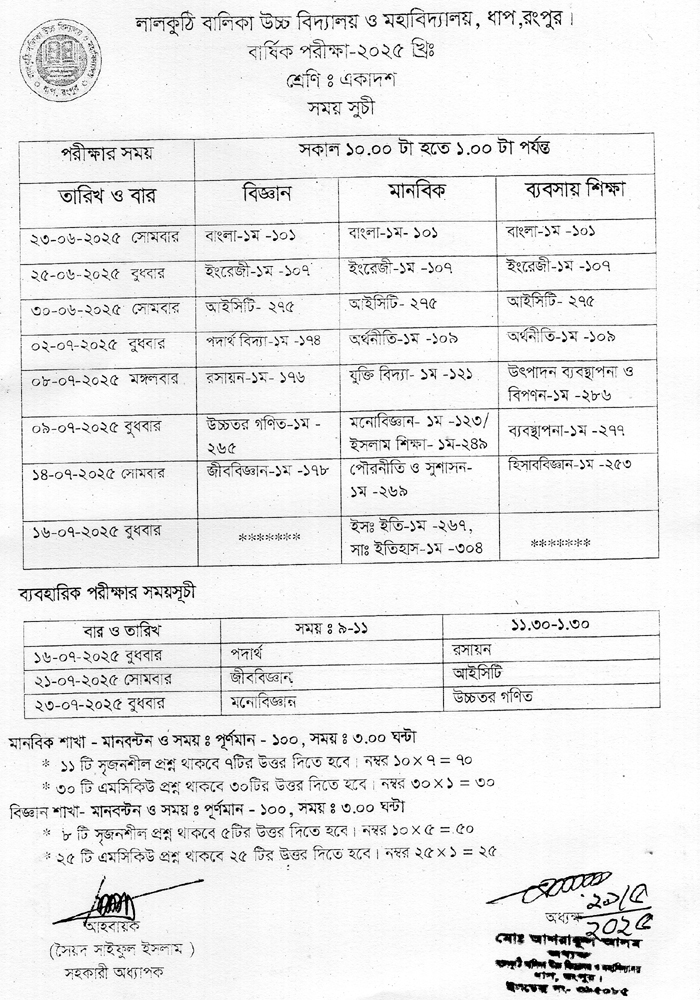 লালকুঠি বালিকা উচ্চ বিদ্যালয় ও মহাবিদ্যালয়, ধাপ,রংপুর।
বার্ষিক পরীক্ষা-২০২৫ খ্রিঃ
শ্রেণি ঃ একাদশ
সময় সুচী
পরীক্ষার সময় সকাল ১০.০০ টা হতে ১.০০ টা পর্যন্ত
তারিখ ও বার বিজ্ঞান মানবিক ব্যবসায় শিক্ষা
২৩-০৬-২০২৫ সোমবার বাংলা-১ম -১০১ বাংলা-১ম- ১০১ বাংলা-১ম -১০১
২৫-০৬-২০২৫ বুধবার ইংরেজী-১ম -১০৭ ইংরেজী-১ম -১০৭ ইংরেজী-১ম -১০৭
৩০-০৬-২০২৫ সোমবার আইসিটি- ২৭৫ আইসিটি- ২৭৫ আইসিটি- ২৭৫
০২-০৭-২০২৫ বুধবার পদার্থ বিদ্যা-১ম -১৭৪ অর্থনীতি-১ম -১০৯ অর্থনীতি-১ম -১০৯
০৮-০৭-২০২৫ মঙ্গলবার রসায়ন-১ম- ১৭৬ যুক্তি বিদ্যা- ১ম -১২১ উৎপাদন ব্যবস্থাপনা ও
বিপণন-১ম -২৮৬
০৯-০৭-২০২৫ বুধবার উচ্চতর গণিত-১ম - মনোবিজ্ঞান- ১ম -১২৩/ ব্যবস্থাপনা-১ম -২৭৭
২৬৫ ইসলাম শিক্ষা- ১ম-২৪৯
১৪-০৭-২০২৫ সোমবার জীববিজ্ঞান-১ম -১৭৮ পৌরনীতি ও সুশাসন- হিসাববিজ্ঞান-১ম -২৫৩
১ম -২৬৯
১৬-০৭-২০২৫ বুধবার ******* ইসঃ ইতি-১ম -২৬৭, *******
সাঃ ইতিহাস-১ম -৩০৪
ব্যবহারিক পরীক্ষার সময়সূচী
বার ও তারিখ সময় ঃ ৯-১১ ১১.৩০-১.৩০
১৬-০৭-২০২৫ বুধবার পদার্থ রসায়ন
২১-০৭-২০২৫ সোমবার জীববিজ্ঞান আইসিটি
২৩-০৭-২০২৫ বুধবার মনোবিজ্ঞান উচ্চতর গণিত
মানবিক শাখা - মানবন্টন ও সময় ঃ পূর্ণমান - ১০০, সময় ঃ ৩.০০ ঘন্টা
* ১১ টি সৃজনশীল প্রশ্ন থাকবে ৭টির উত্তর দিতে হবে। নম্বর ১০×৭ = ৭০
* ৩০ টি এমসিকিউ প্রশ্ন থাকবে ৩০টির উত্তর দিতে হবে। নম্বর ৩০×১ = ৩০
বিজ্ঞান শাখা- মানবন্টন ও সময় ঃ পূর্ণমান - ১০০, সময় ঃ ৩.০০ ঘন্টা
* ৮ টি সৃজনশীল প্রশ্ন থাকবে ৫টির উত্তর দিতে হবে। নম্বর ১০×৫ = ৫০
* ২৫ টি এমসিকিউ প্রশ্ন থাকবে ২৫ টির উত্তর দিতে হবে। নম্বর ২৫×১ = ২৫
আহবায়ক
(সৈয়দ সাইফুল ইসলাম )
সহকারী অধ্যাপক
২৯/৫
অধ্যক্ষ ২০২৫
মোঃ আশরাফুল আলম
অধ্যক্ষ
লালকুঠি বালিকা উচ্চ বিদ্যালয় ও মহাবিদ্যালয়
ধাপ, রংপুর।